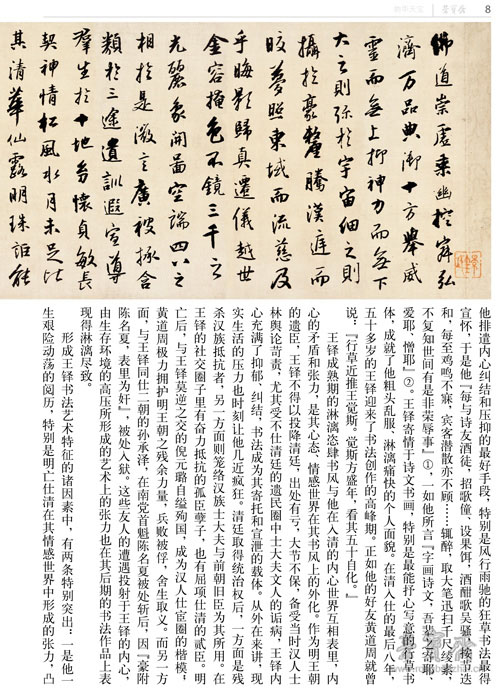 8
佛道崇虛乘幽控寂弘
濟万品典御十方舉威
靈而無上抑神力而無下
大之則弥於宇宙細之則
攝於豪釐騰漢庭而
皎夢照東域而流慈及
乎晦影歸真遷儀越世
金容掩色不鏡三千之
光麗象開圖空端四八之
相於是微言廣被拯含
類於三途遺訓遐宣導
羣生於十地
懷貞敏長
契神情松風水月未足比
其清華仙露明珠詎能
他排遣内心纠结和压抑的最好手段，特别是风行雨驰的狂草书法最得
宣怀，于是他『每与诗友酒徒，招歌僮、设果饵，酒酣歌吴骚，按节迭
和，每至鸡鸣不寐，宾客潜散亦不顾……辄醉，取大笔迅扫千
不复知世间有是非荣辱事』①，一如他所言『字画诗文，吾热
爱耶、憎耶』②。王铎寄情于诗文书画，特别是最能抒心写意的
体，成就了他粗头乱服、淋漓痛快的个人面貌。在清入仕的最后八年，
五十多岁的王铎迎来了书法创作的高峰期。正如他的好友黄道周就曾
说：『行草近推王觉斯。觉斯方盛年，看其五十自化。』
王铎成熟期的淋漓恣肆书风与他在入清的内心世界互相表里，内
心的矛盾和张力，是其心态、情感世界在其书风上的外化。作为明王朝
的遗臣，王铎不得以投降清廷，出处有亏，大节不保，备受当时汉人士
林舆论苛责，尤其受不仕清廷的遗民圈中士大夫文人的诟病，王铎内
心充满了抑郁、纠结，书法成为其寄托和宣泄的载体。从外在来讲，现
实生活的压力也时刻让他几近疯狂。清廷取得统治权后，一方面是残
杀汉族抵抗者，另一方面则笼络汉族士大夫与前朝旧臣为其所用。在
王铎的社交圈子里有奋力抵抗的孤臣孽子，也有屈项仕清的贰臣。明
亡后，与王铎莫逆之交的倪元璐自缢殉国，成为汉人仕宦圈的楷模，
黄道周极力拥护明王朝之残余力量，兵败被俘，舍生取义。而另一方
面，与王铎同仕二朝的孙承泽，在南党首魁陈名夏被处斩后，因『豪附
陈名夏，表里为奸』，被处入狱。这些友人的遭遇投射于王铎的内心，
由生存环境的高压所形成的艺术上的张力也在其后期的书法作品上表
现得淋漓尽致。
形成王铎书法艺术特征的诸因素中，有两条特别突出：一是他一
生艰险动荡的阅历，特别是明亡仕清在其情感世界中形成的张力，凸